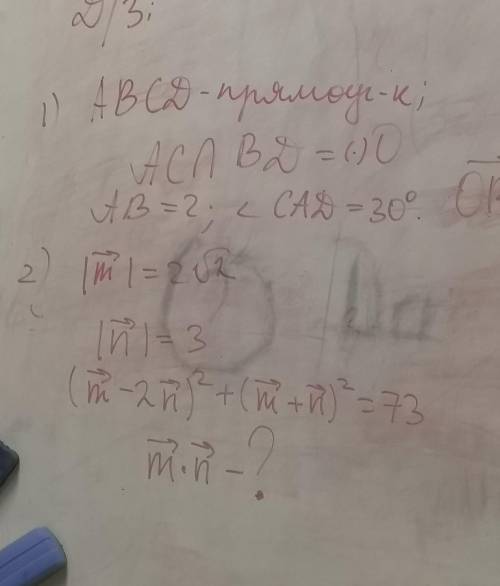 Д/З:
1) ABCD - прямоуг-к;
AC ∩ BD = (·) O
AB = 2; < CAD = 30°.
2) |m⃗| = 2√2
|n⃗| = 3
(m⃗ - 2n⃗)² + (m⃗ + n⃗)² = 73
m⃗ · n⃗ - ?